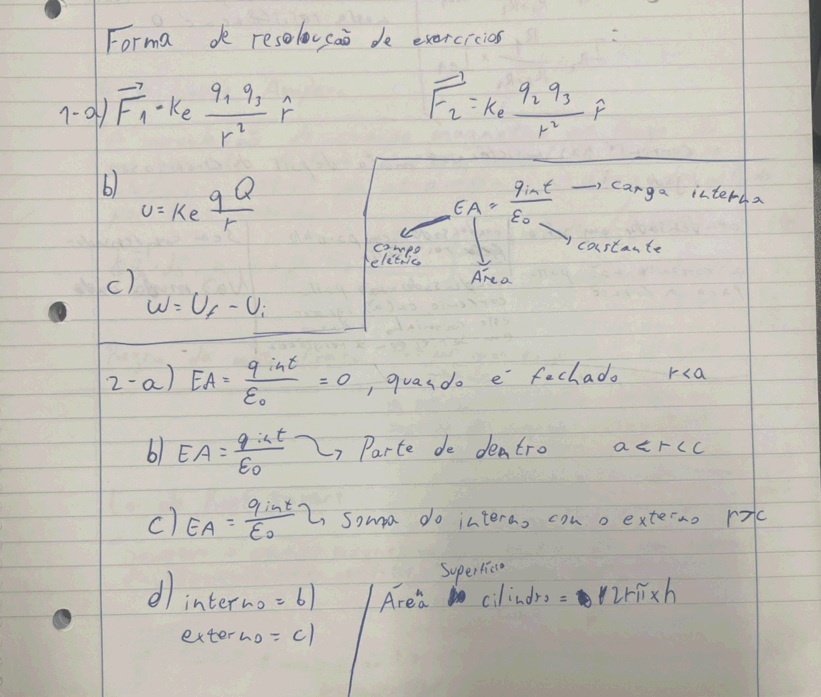 Forma de resolução de exercícios
1-a) F₁ = Ke q₁ q₃ / r² r̂
F₂ = Ke q₂ q₃ / r² r̂
b) U = Ke q Q / r
EA = qint / ε₀ → carga interna
constante
campo elétrico
Área
c) W = Uf - Ui
2-a) EA = qint / ε₀ = 0, quando é fechado r<a
b) EA = qint / ε₀ → Parte de dentro a<r<c
c) EA = qint / ε₀ → soma do interno com o externo r>c
d) interno = b)
externo = c)
Superfície
Área cilindro = 2rπxh